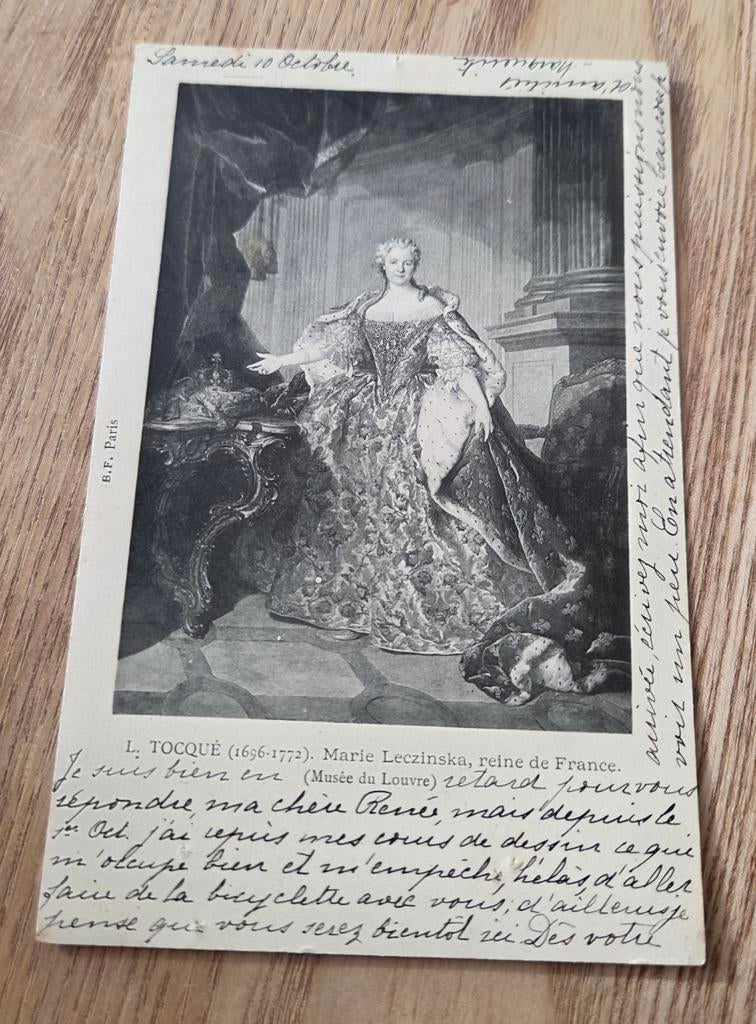 Samedi 10 Octobre
B.F. Paris
L. TOCQUÉ (1696-1772). Marie Leczinska, reine de France.
(Musée du Louvre)
Je suis bien en retard pour vous
répondre, ma chère Renée, mais depuis le
1er Oct. j'ai repris mes cours de dessin ce qui
m'occupe bien et m'empêche, hélas, d'aller
faire de la bicyclette avec vous; d'ailleurs je
pense que vous serez bientôt ici. Dès votre
arrivée, écrivez moi afin que nous puissions nous
voir un peu. En attendant je vous envoie beaucoup
d'amitiés
Marguerite